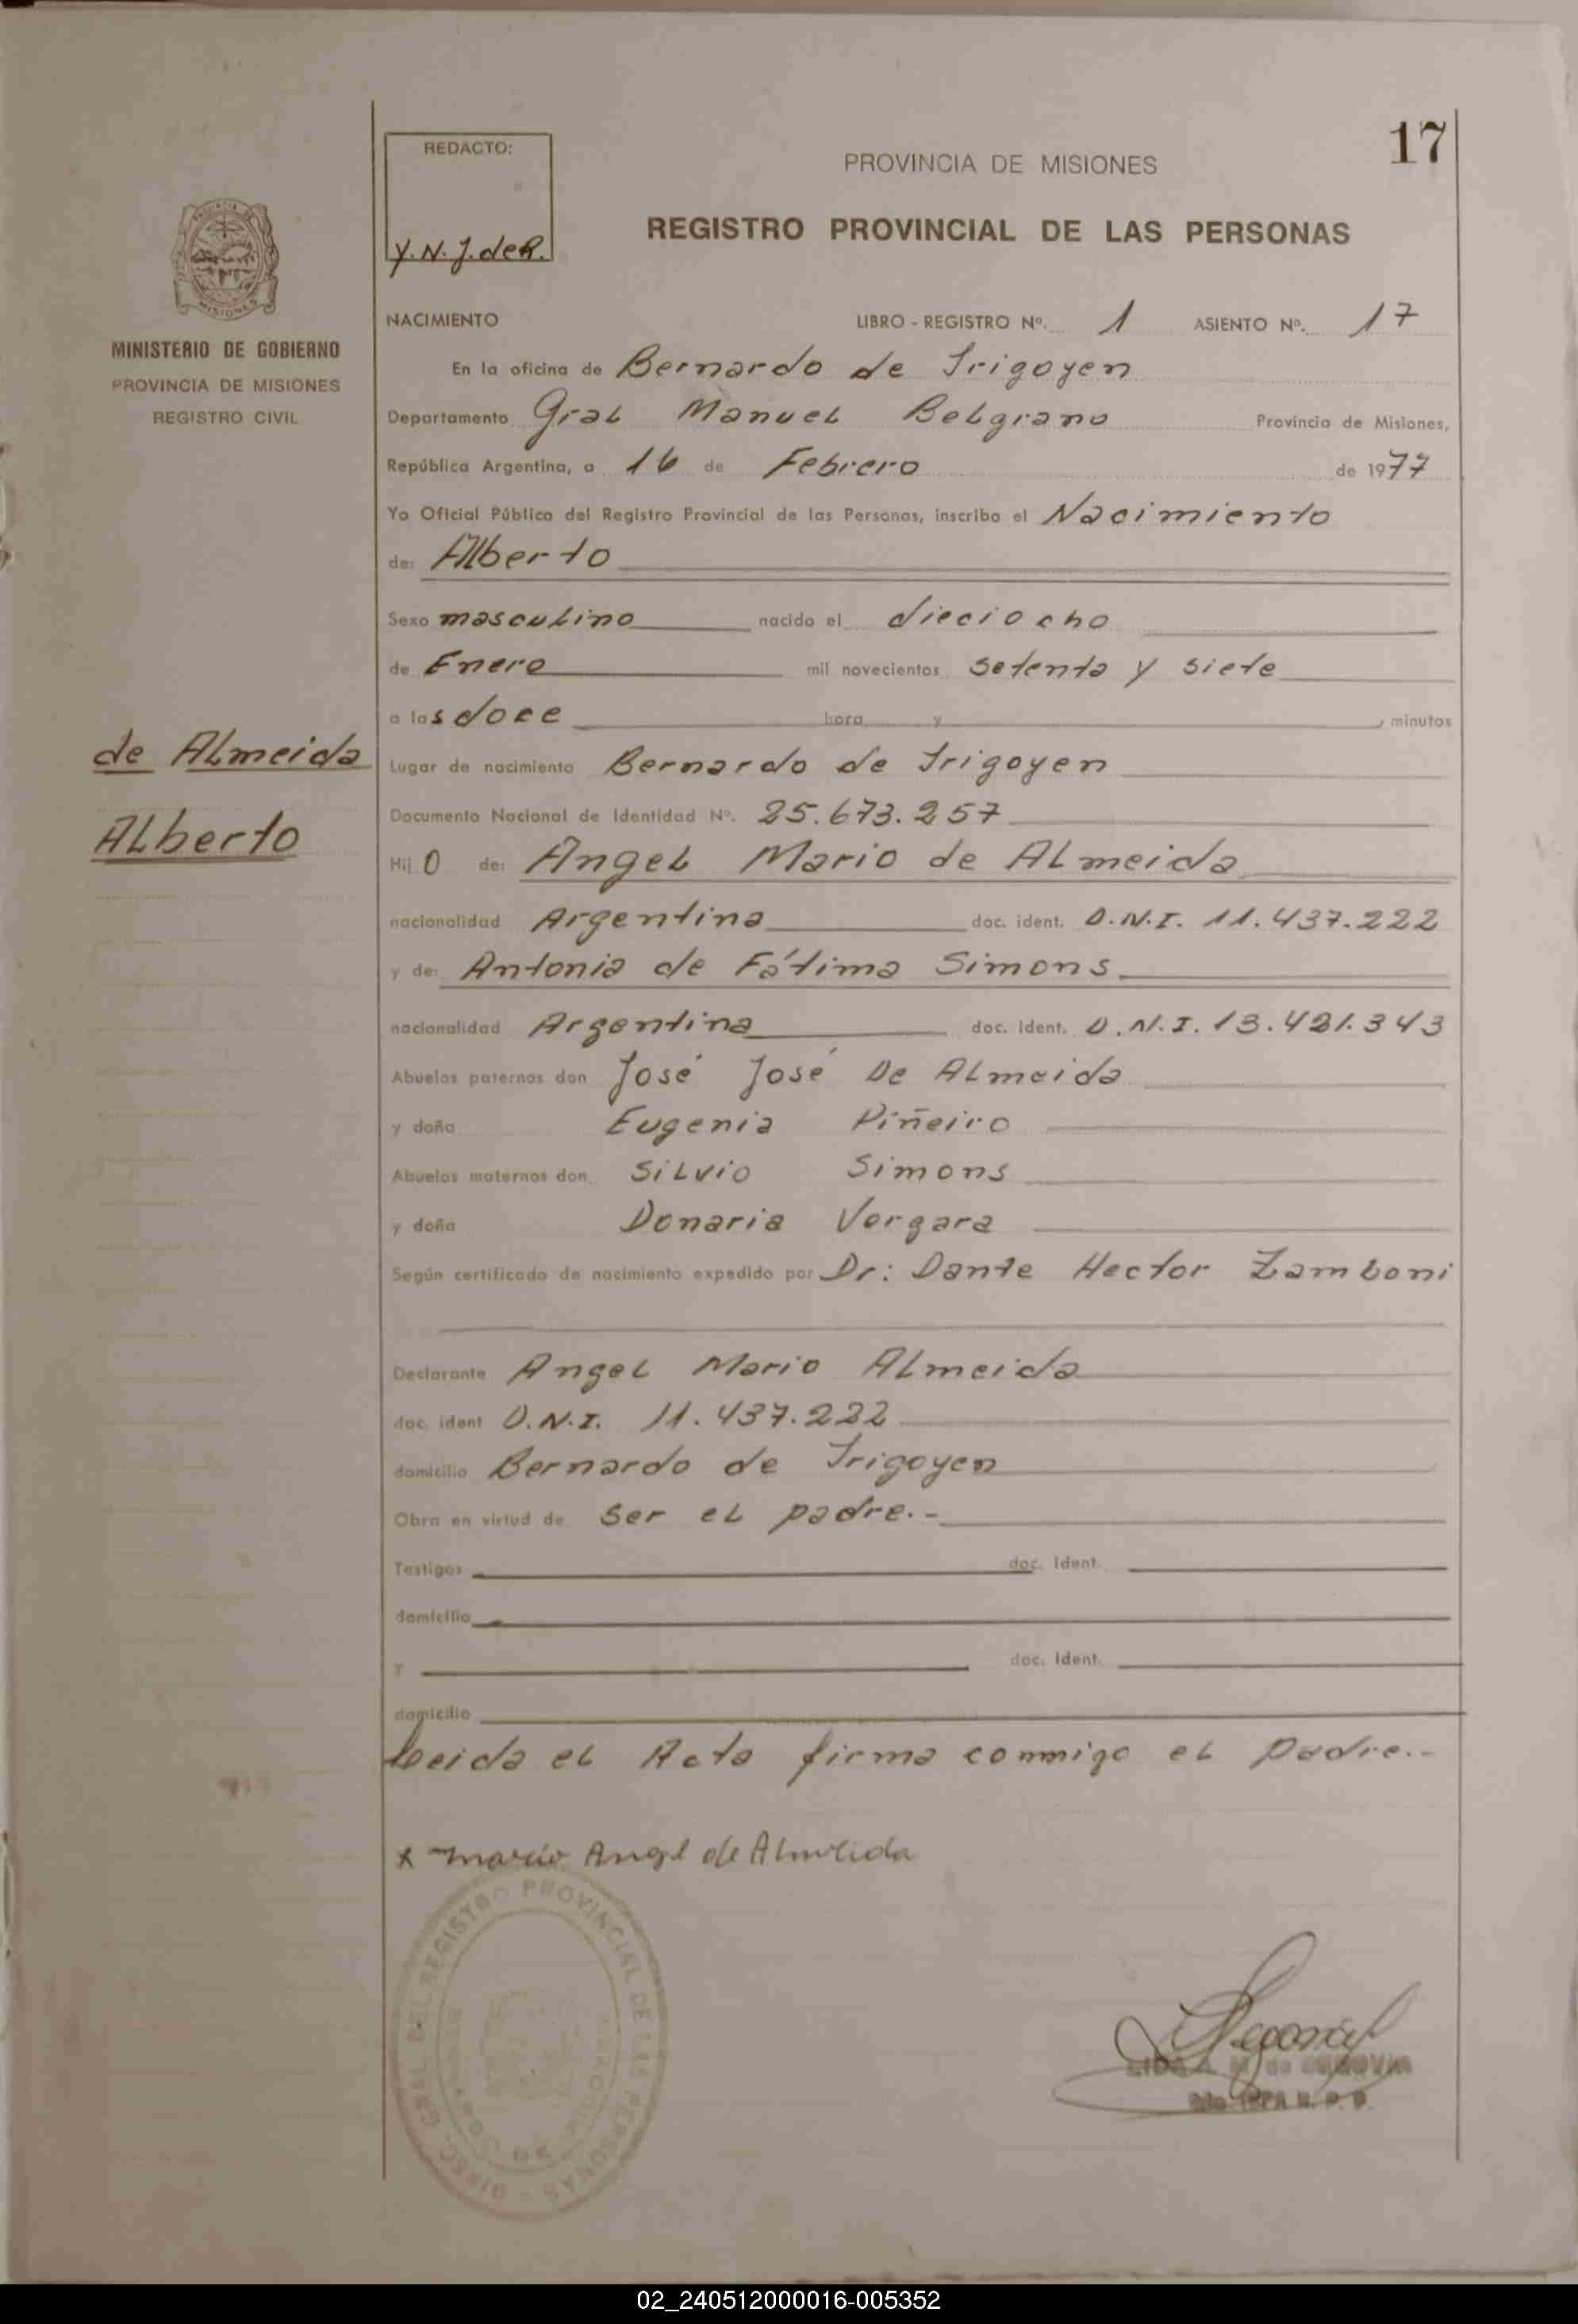 17
REDACTO:
Y.N.J.deR.
PROVINCIA DE MISIONES
REGISTRO PROVINCIAL DE LAS PERSONAS
MISIONES
MINISTERIO DE GOBIERNO
PROVINCIA DE MISIONES
REGISTRO CIVIL
NACIMIENTO LIBRO - REGISTRO Nº. 1 ASIENTO Nº. 17
En la oficina de Bernardo de Irigoyen
Departamento Gral Manuel Belgrano Provincia de Misiones,
República Argentina, a 16 de Febrero de 1977
Yo Oficial Público del Registro Provincial de las Personas, inscribo el Nacimiento
de: Alberto
Sexo masculino nacido el dieciocho
de Enero mil novecientos setenta y siete
a las doce hora y minutos
de Almeida
Alberto
Lugar de nacimiento Bernardo de Irigoyen
Documento Nacional de Identidad Nº. 25.673.257
Hij O de: Angel Mario de Almeida
nacionalidad Argentina doc. ident. D.N.I. 11.437.222
y de: Antonia de Fátima Simons
nacionalidad Argentina doc. ident. D.N.I. 13.421.343
Abuelos paternos don José José De Almeida
y doña Eugenia Piñeiro
Abuelos maternos don Silvio Simons
y doña Donaria Vergara
Según certificado de nacimiento expedido por Dr: Dante Hector Zamboni
Declarante Angel Mario Almeida
doc. ident D.N.I. 11.437.222
domicilio Bernardo de Irigoyen
Obra en virtud de ser el padre.-
Testigos doc. ident.
domicilio
y doc. ident.
domicilio
Leida el Acta firma conmigo el padre.-
x Mario Angel de Almeida
DIREC. GRAL. DEL REGISTRO PROVINCIAL DE LAS PERSONAS
02_240512000016-005352